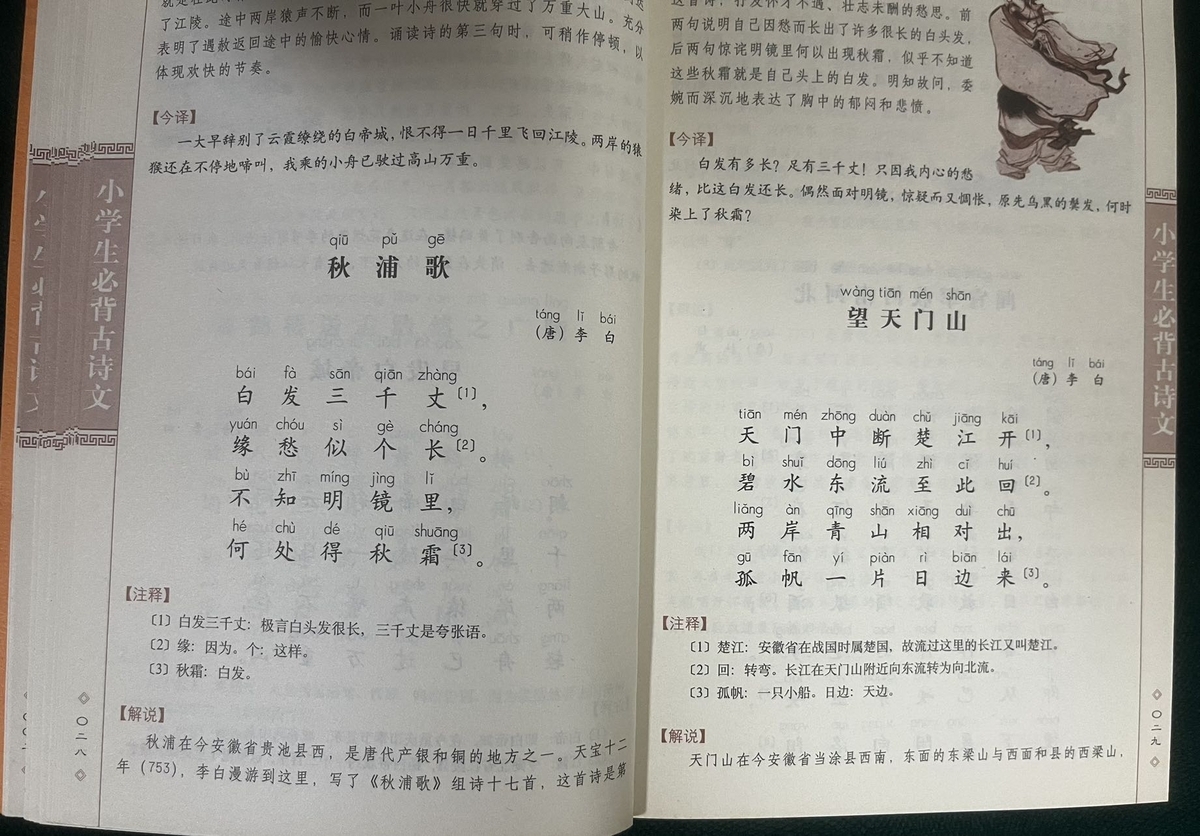 了江陵。途中两岸猿声不断，而一叶小舟很快就穿过了万重大山。充分
表明了遇赦返回途中的愉快心情。诵读诗的第三句时，可稍作停顿，以
体现欢快的节奏。
【今译】
一大早辞别了云霞缭绕的白帝城，恨不得一日千里飞回江陵。两岸的猿
猴还在不停地啼叫，我乘的小舟已驶过高山万重。
qiū pǔ gē
秋浦歌
táng lǐ bái
（唐）李白
bái fà sān qiān zhàng
白发三千丈〔1〕，
yuán chóu sì gè cháng
缘愁似个长〔2〕。
bù zhī míng jìng lǐ
不知明镜里，
hé chù dé qiū shuāng
何处得秋霜〔3〕。
【注释】
〔1〕白发三千丈：极言白头发很长，三千丈是夸张语。
〔2〕缘：因为。个：这样。
〔3〕秋霜：白发。
【解说】
秋浦在今安徽省贵池县西，是唐代产银和铜的地方之一。天宝十二
年（753），李白漫游到这里，写了《秋浦歌》组诗十七首，这首诗是第
小学生必背古诗文
〇二八
两句说明自己因愁而长出了许多很长的白头发，
后两句惊诧明镜里何以出现秋霜，似乎不知道
这些秋霜就是自己头上的白发。明知故问，委
婉而深沉地表达了胸中的郁闷和悲愤。
【今译】
白发有多长？足有三千丈！只因我内心的愁
绪，比这白发还长。偶然面对明镜，惊疑而又惆怅，原先乌黑的鬓发，何时
染上了秋霜？
wàng tiān mén shān
望天门山
táng lǐ bái
（唐）李白
tiān mén zhōng duàn chǔ jiāng kāi
天门中断楚江开〔1〕，
bì shuǐ dōng liú zhì cǐ huí
碧水东流至此回〔2〕。
liǎng àn qīng shān xiāng duì chū
两岸青山相对出，
gū fān yí piàn rì biān lái
孤帆一片日边来〔3〕。
【注释】
〔1〕楚江：安徽省在战国时属楚国，故流过这里的长江又叫楚江。
〔2〕回：转弯。长江在天门山附近向东流转为向北流。
〔3〕孤帆：一只小船。日边：天边。
【解说】
天门山在今安徽省当涂县西南，东面的东梁山与西面和县的西梁山，
小学生必背古诗文
〇二九